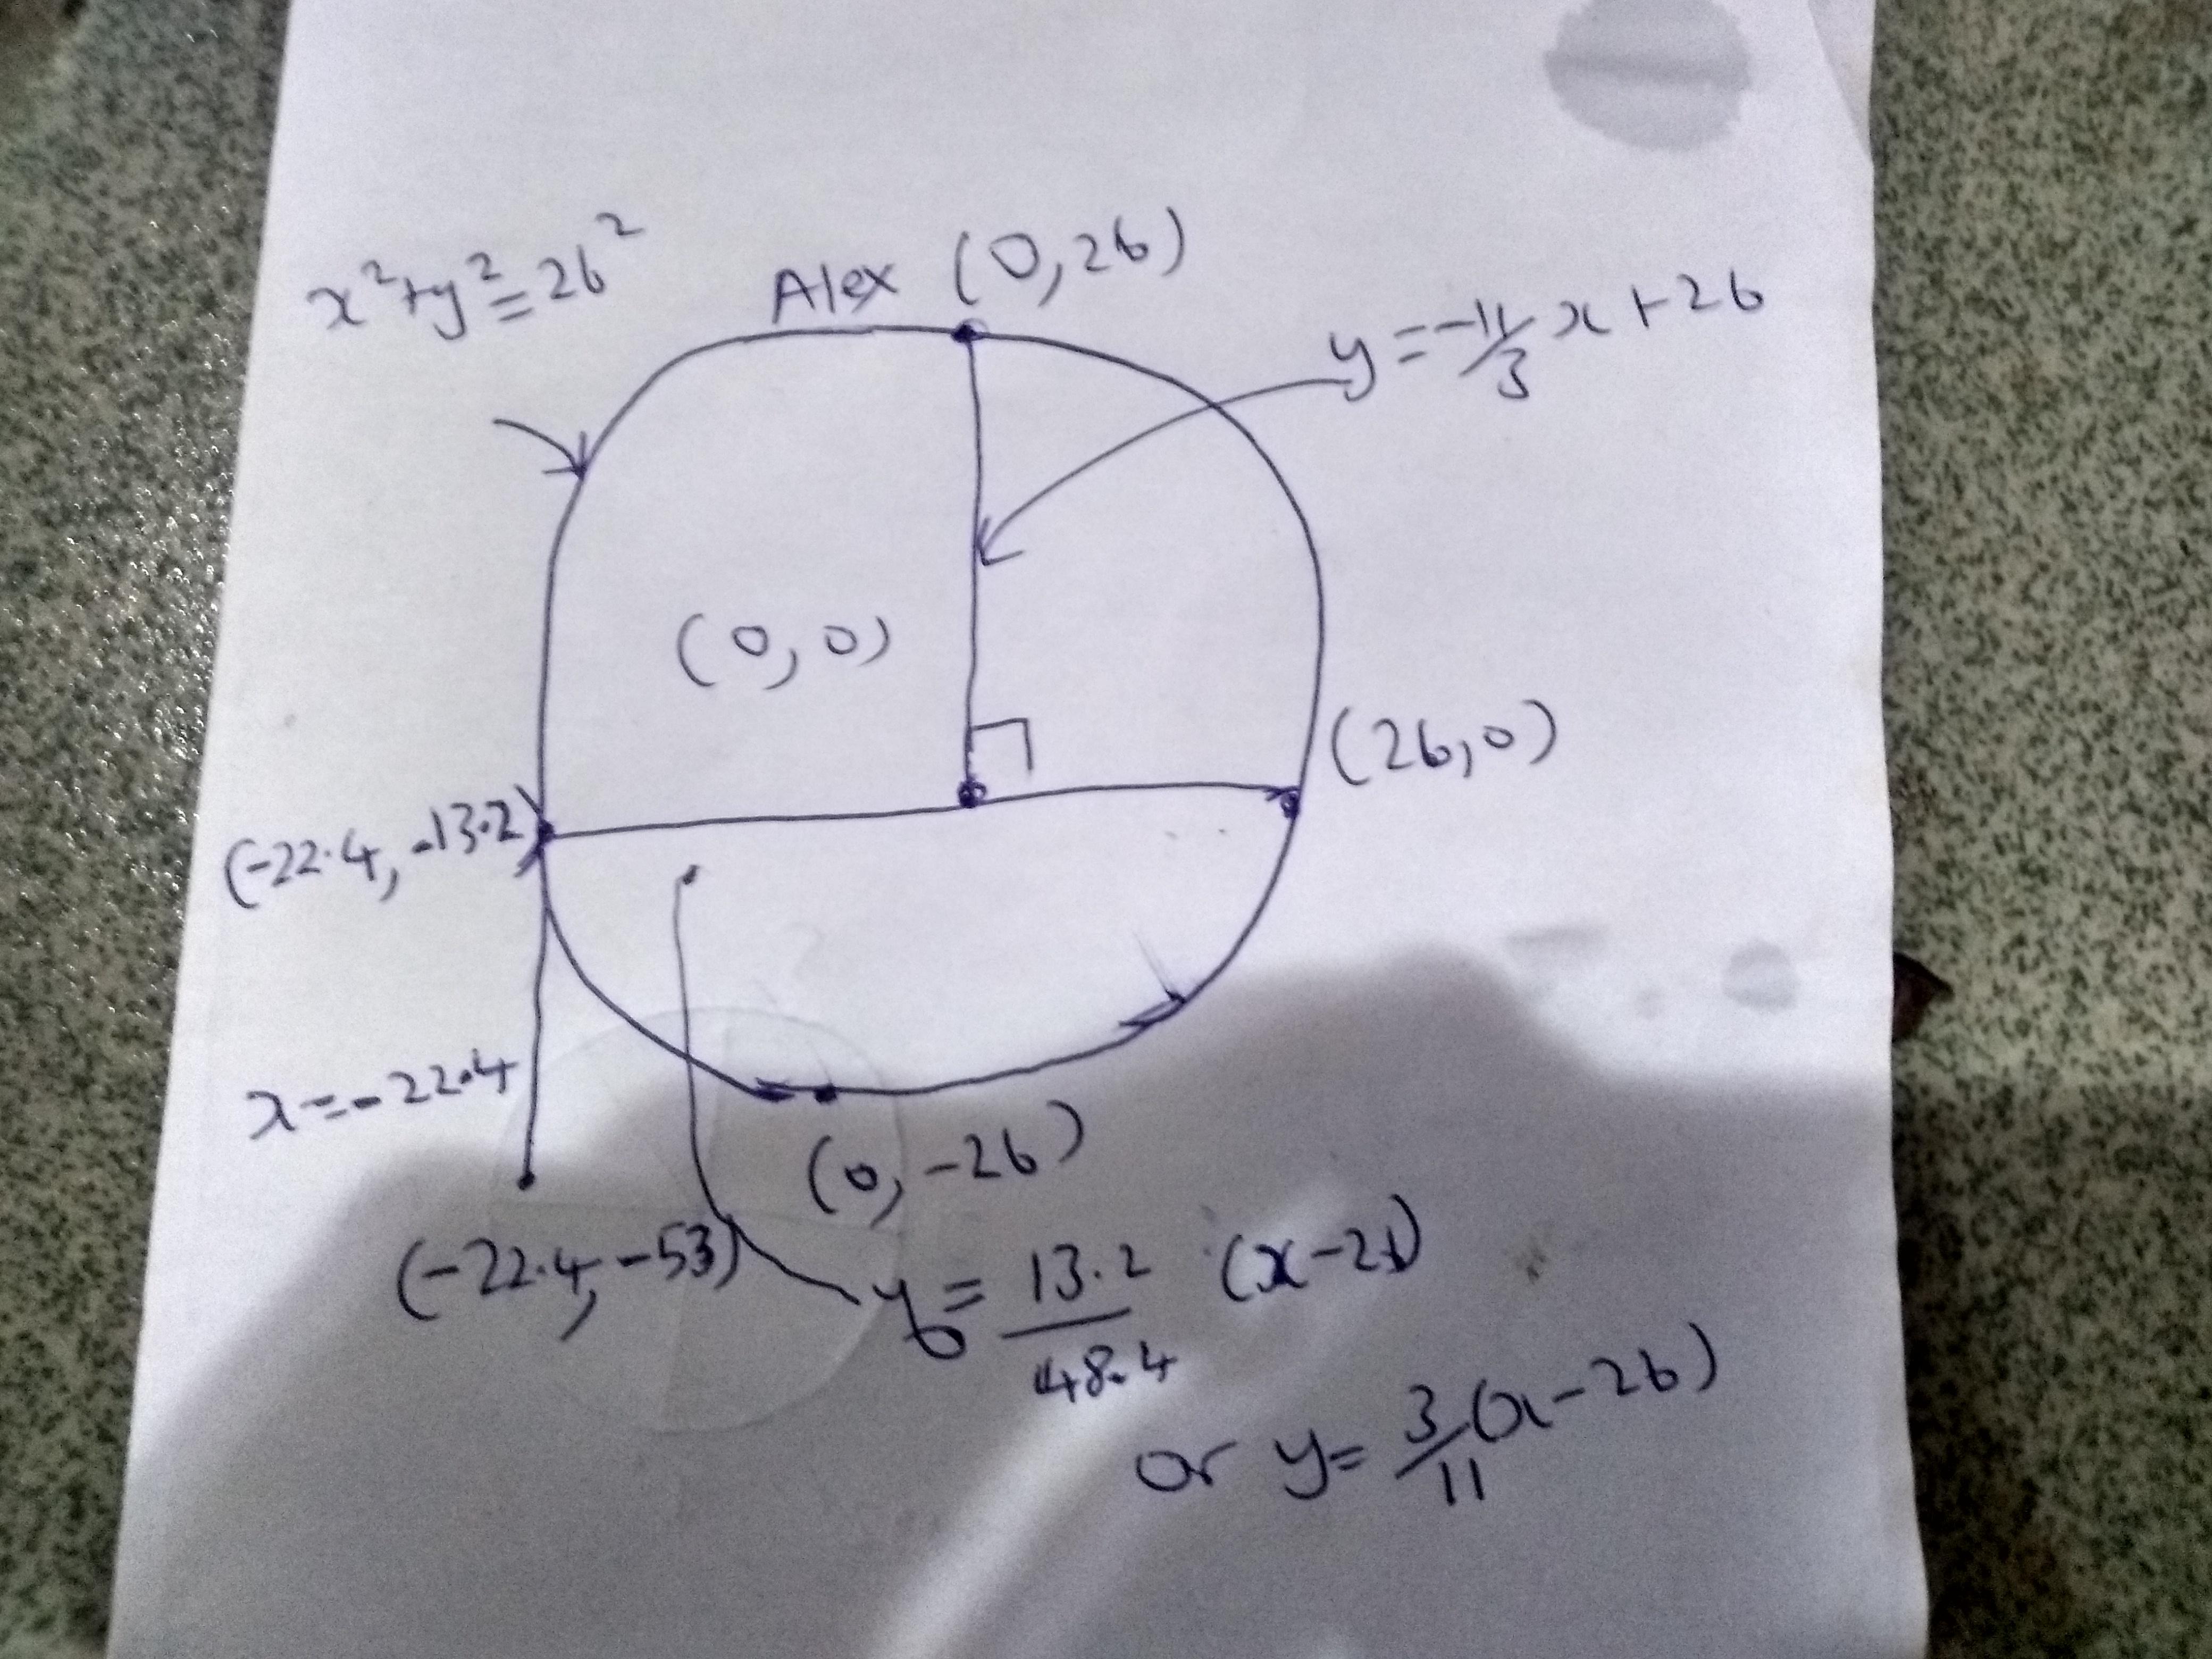 x²+y²=26²
Alex (0,26)
y=-11/3 x+26
(0,0)
(26,0)
(-22.4, -13.2)
x=-22.4
(0,-26)
(-22.4,-53)
y= 13.2/48.4 (x-26)
or y= 3/11 (x-26)